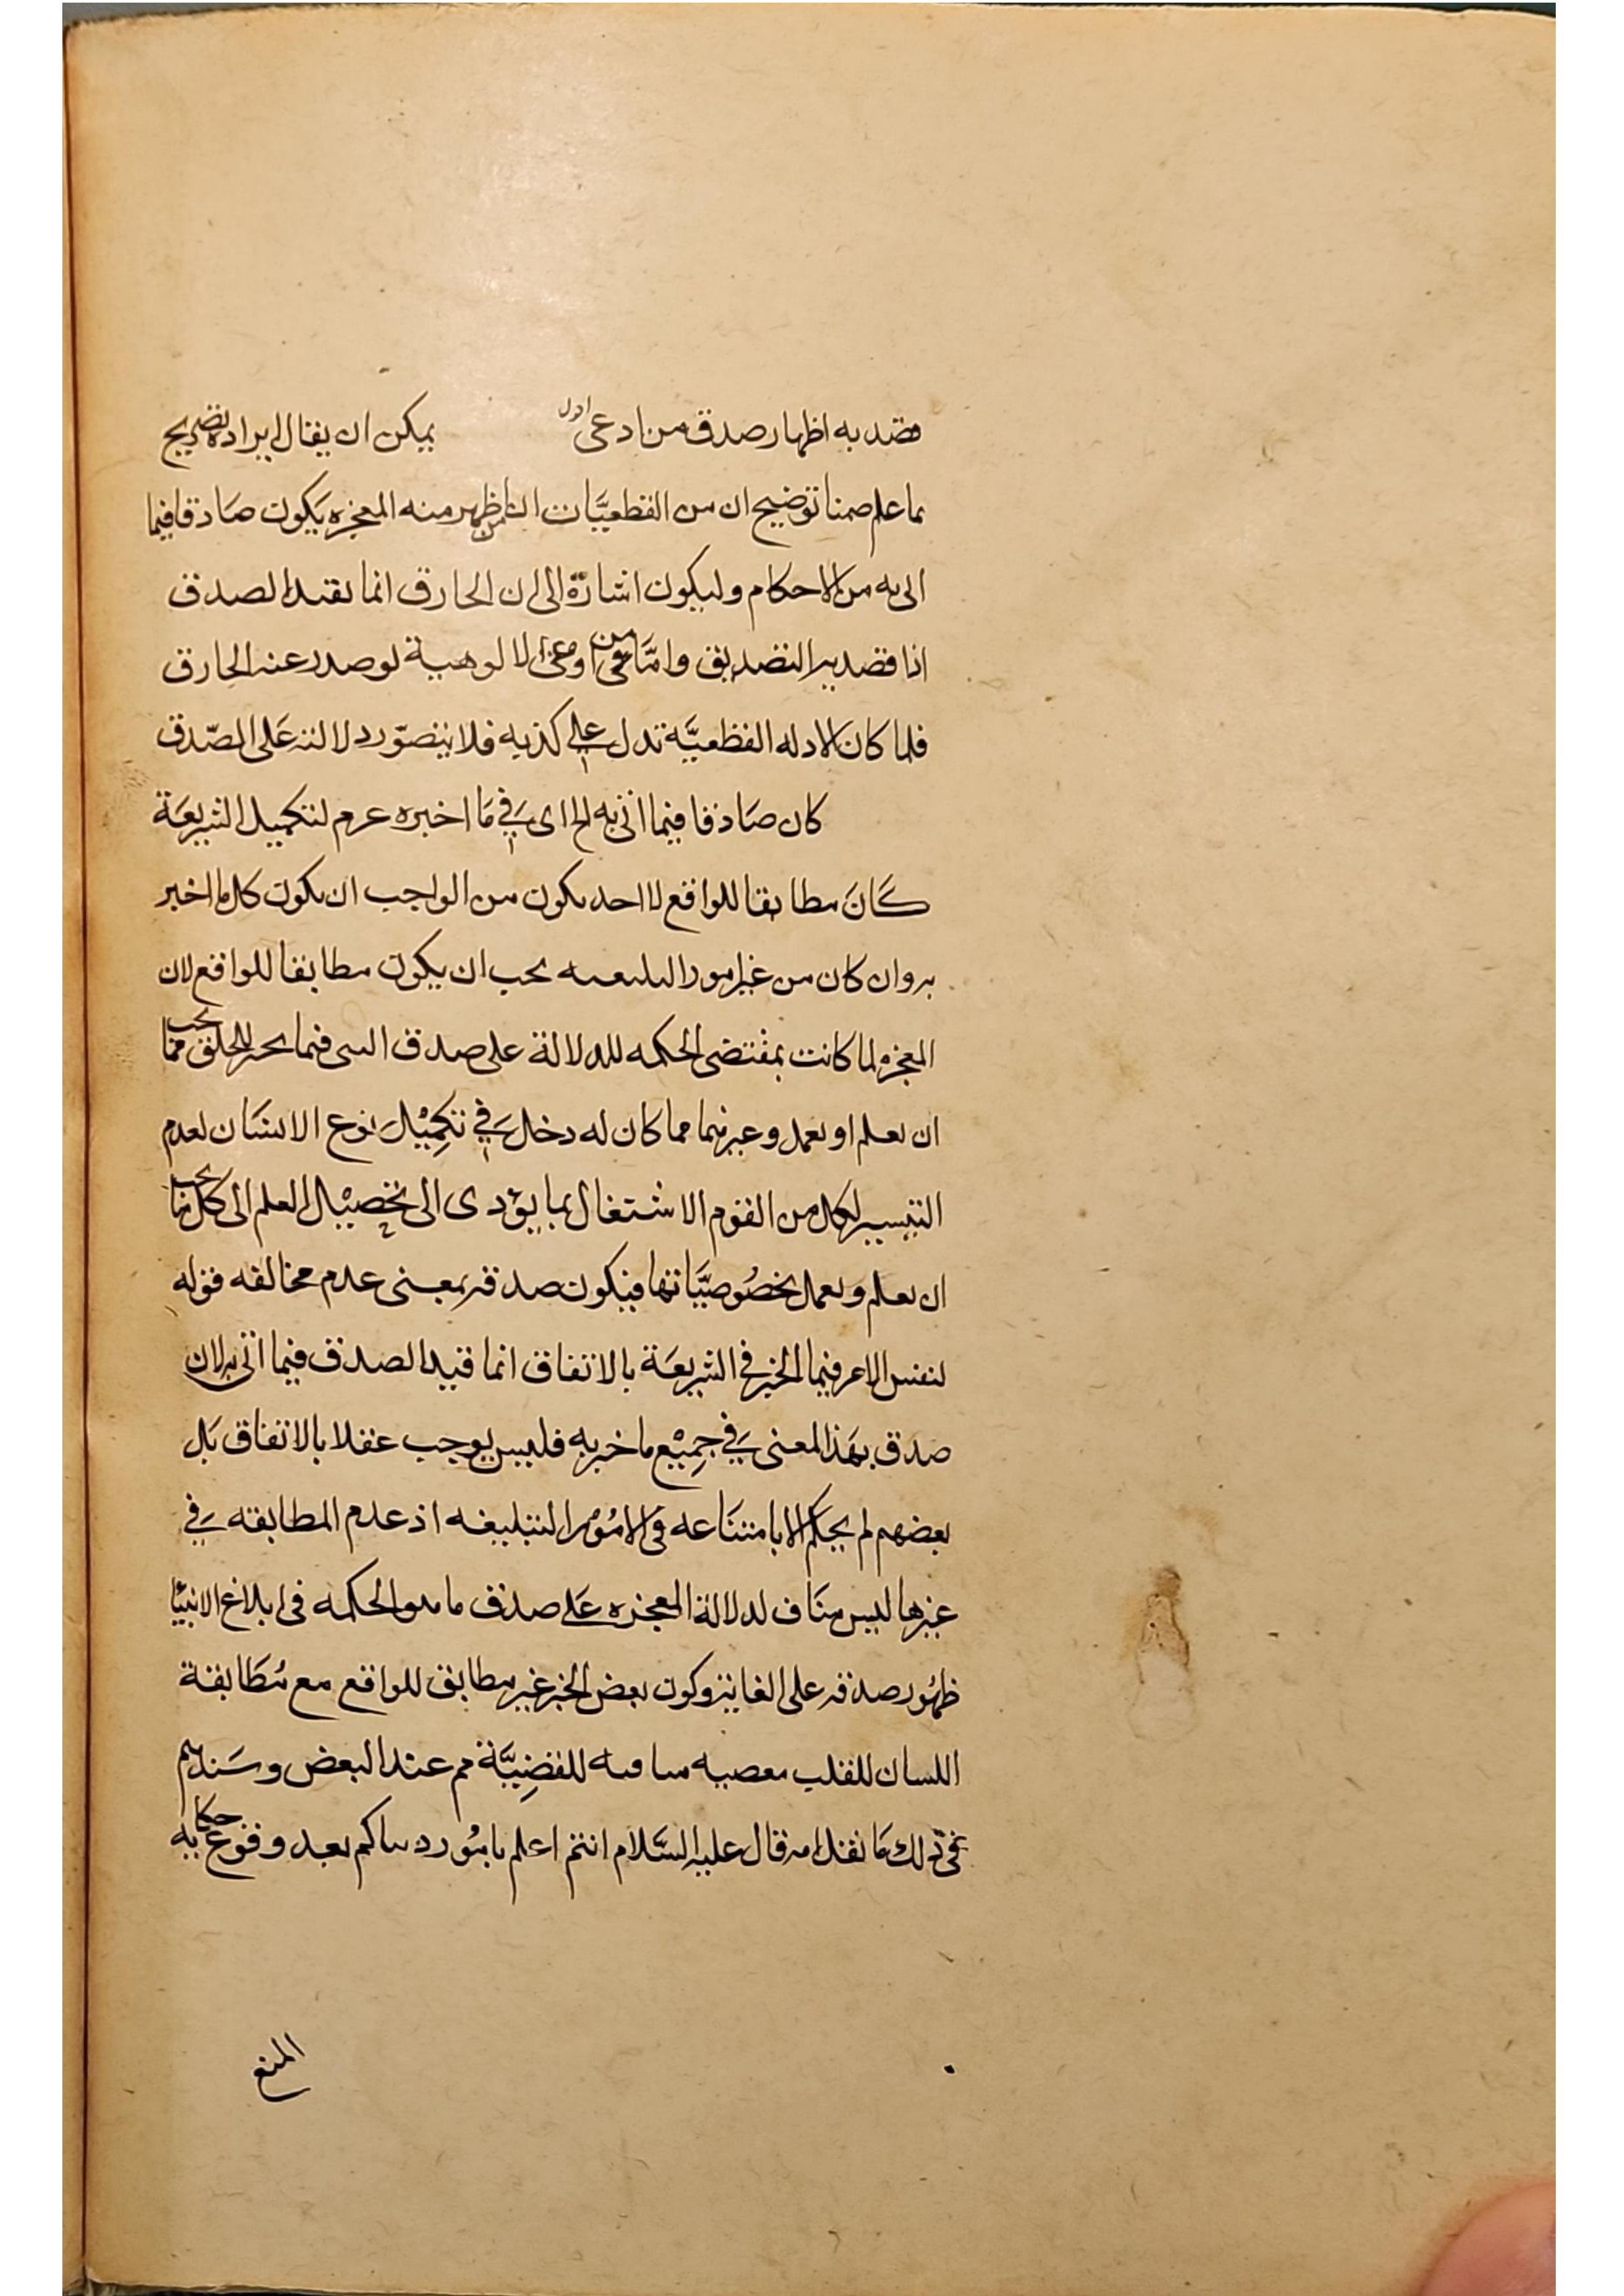 قصد به اظهار صدق من ادعى اول يمكن ان يقال ايراده تصريح
بما علم ضمنا توضيح ان من القطعيات ان من ظهر منه المعجزه يكون صادقا فيما
اتى به من الاحكام وليكون اشارة الى ان الخارق انما يفيد الصدق
اذا قصد به التصديق واما من الالوهية لو صدر عنه الخارق
فلما كان الادله القطعيّة تدل على كذبه فلا يتصوّر دلالته على الصّدق
كان صَادقا فيما اتى به الخ اى في مَا اخبره عرم لتكميل الشريعَة
كَانَ مطابقا للواقع لا احد يكون من الواجب ان يكون كل ما اخبر
به وان كان من غير امور التبليغيه يجب ان يكون مطابقا للواقع لان
المعجزه لما كانت بمقتضى الحكمه للدلالة على صدق النبى فيما يخبر للخلق مما يجب
ان يعلم او يعمل وغيرهما مما كان له دخل في تكمِيْل نوع الانسَان لعدم
التيسير لكل من القوم الاشتغال بما يؤدى الى تحصِيْل العلم الى كل ما يجب
ان يعلم ويعمل بخصُوصيَّاتها فيكون صدقه بمعنى عدم مخالفه قوله
لنفس الامر فيما الخبر في الشريعَة بالاتفاق انما قيد الصدق فيما اتى به لان
صدق بهَذا المعنى في جمِيْع ما خبر به فليس يوجب عقلا بالاتفاق بَل
بعضهم لم يحكم الا بامتنَاعه فى الامُوْر التبليغه اذ عدم المطابقه في
غيرها ليس منَاف لدلالة المعجزه عَلى صدق ما هو الحكمه فى ابلاغ الانبيَا
ظهُور صدقه على الغاية وكون بعض الخبر غير مطابق للواقع مع مُطَابقة
اللسان للقلب معصيه منافيه للقضِيَّة مم عند البعض وسَندهم
فى ذلك مَا نقل انه قال عليه السَّلام انتم اعلم بامُور دنياكم بعد وقوع حكايه
المنع